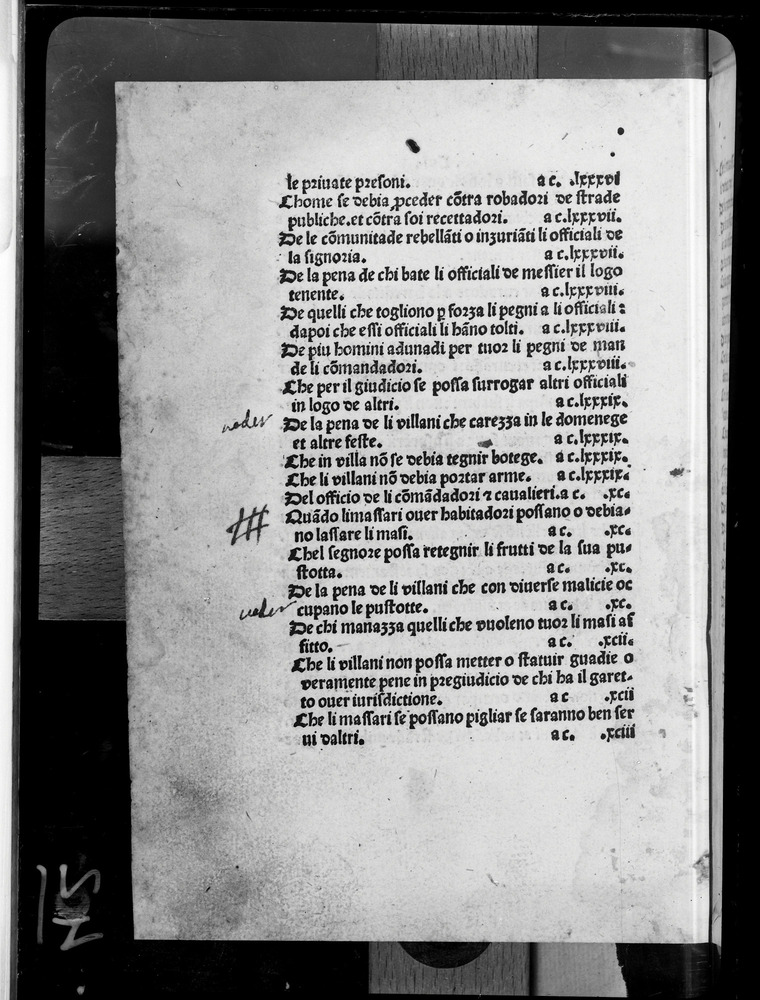 le priuate presoni. a c. .lxxxvi
Chome se debia ꝓceder cōtra robadori de strade
publiche.et cōtra soi recettadori. a c.lxxxvii.
De le cōmunitade rebellāti o inzuriāti li officiali de
la signoria. a c.lxxxvii.
De la pena de chi bate li officiali de messier il logo
tenente. a c.lxxxviii.
De quelli che togliono ꝑ forza li pegni a li officiali ⁊
dapoi che essi officiali li hāno tolti. a c.lxxxviii.
De piu homini adunadi per tuor li pegni de man
de li cōmandadori. a c.lxxxviii.
Che per il giudicio se possa surrogar altri officiali
in logo de altri. a c.lxxxix.
De la pena de li villani che carezza in le domenege
et altre feste. a c.lxxxix.
Che in villa nō se debia tegnir botege. a c.lxxxix.
Che li villani nō debia portar arme. a c.lxxxix.
Del officio de li cōmādadori ⁊ caualieri.a c. .xc.
Quādo limassari ouer habitadori possano o debia-
no lassare li masi. a c. .xc.
Chel segnore possa retegnir li frutti de la sua pu-
stotta. a c. .xc.
De la pena de li villani che con diuerse malicie oc
cupano le pustotte. a c. .xc.
De chi manazza quelli che vuoleno tuor li masi af
fitto. a c. .xcii.
Che li villani non possa metter o statuir guadie o
veramente pene in pregiudicio de chi ha il garet-
to ouer iurisdictione. a c .xcii
Che li massari se possano pigliar se saranno ben ser
ui daltri. a c. .xciii